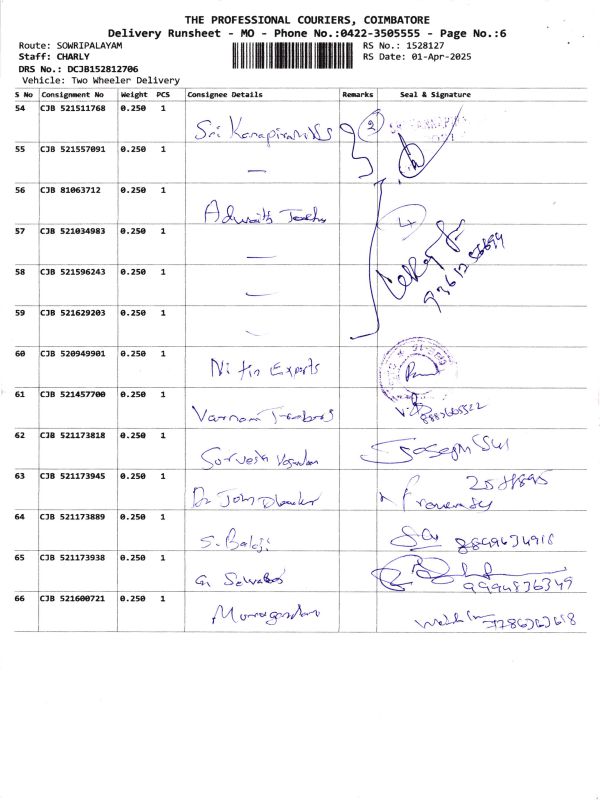 THE PROFESSIONAL COURIERS, COIMBATORE
Delivery Runsheet - MO - Phone No.:0422-3505555 - Page No.:6
Route: SOWRIPALAYAM RS No.: 1528127
Staff: CHARLY RS Date: 01-Apr-2025
DRS No.: DCJB152812706
Vehicle: Two Wheeler Delivery
S No Consignment No Weight PCS Consignee Details Remarks Seal & Signature
54 CJB 521511768 0.250 1 Sri 2
55 CJB 521557091 0.250 1 —
56 CJB 81063712 0.250 1 4
57 CJB 521034983 0.250 1 —
58 CJB 521596243 0.250 1 —
59 CJB 521629203 0.250 1 —
60 CJB 520949901 0.250 1 Nitin Exports
61 CJB 521457700 0.250 1
62 CJB 521173818 0.250 1 Sarvesh
63 CJB 521173945 0.250 1 Dr John
64 CJB 521173889 0.250 1 S. Balaji
65 CJB 521173938 0.250 1 G. 9994836349
66 CJB 521600721 0.250 1